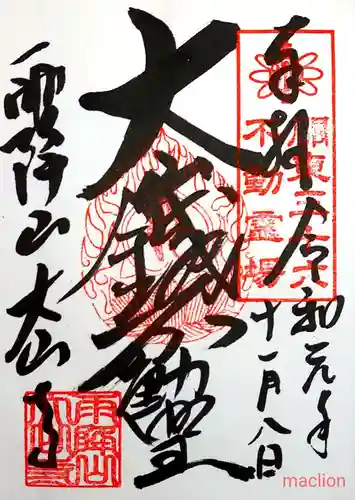 奉拝
令和元年
十一月八日
関東三十六
不動霊場
大鐵不動堂
雨降山大山寺
maclion